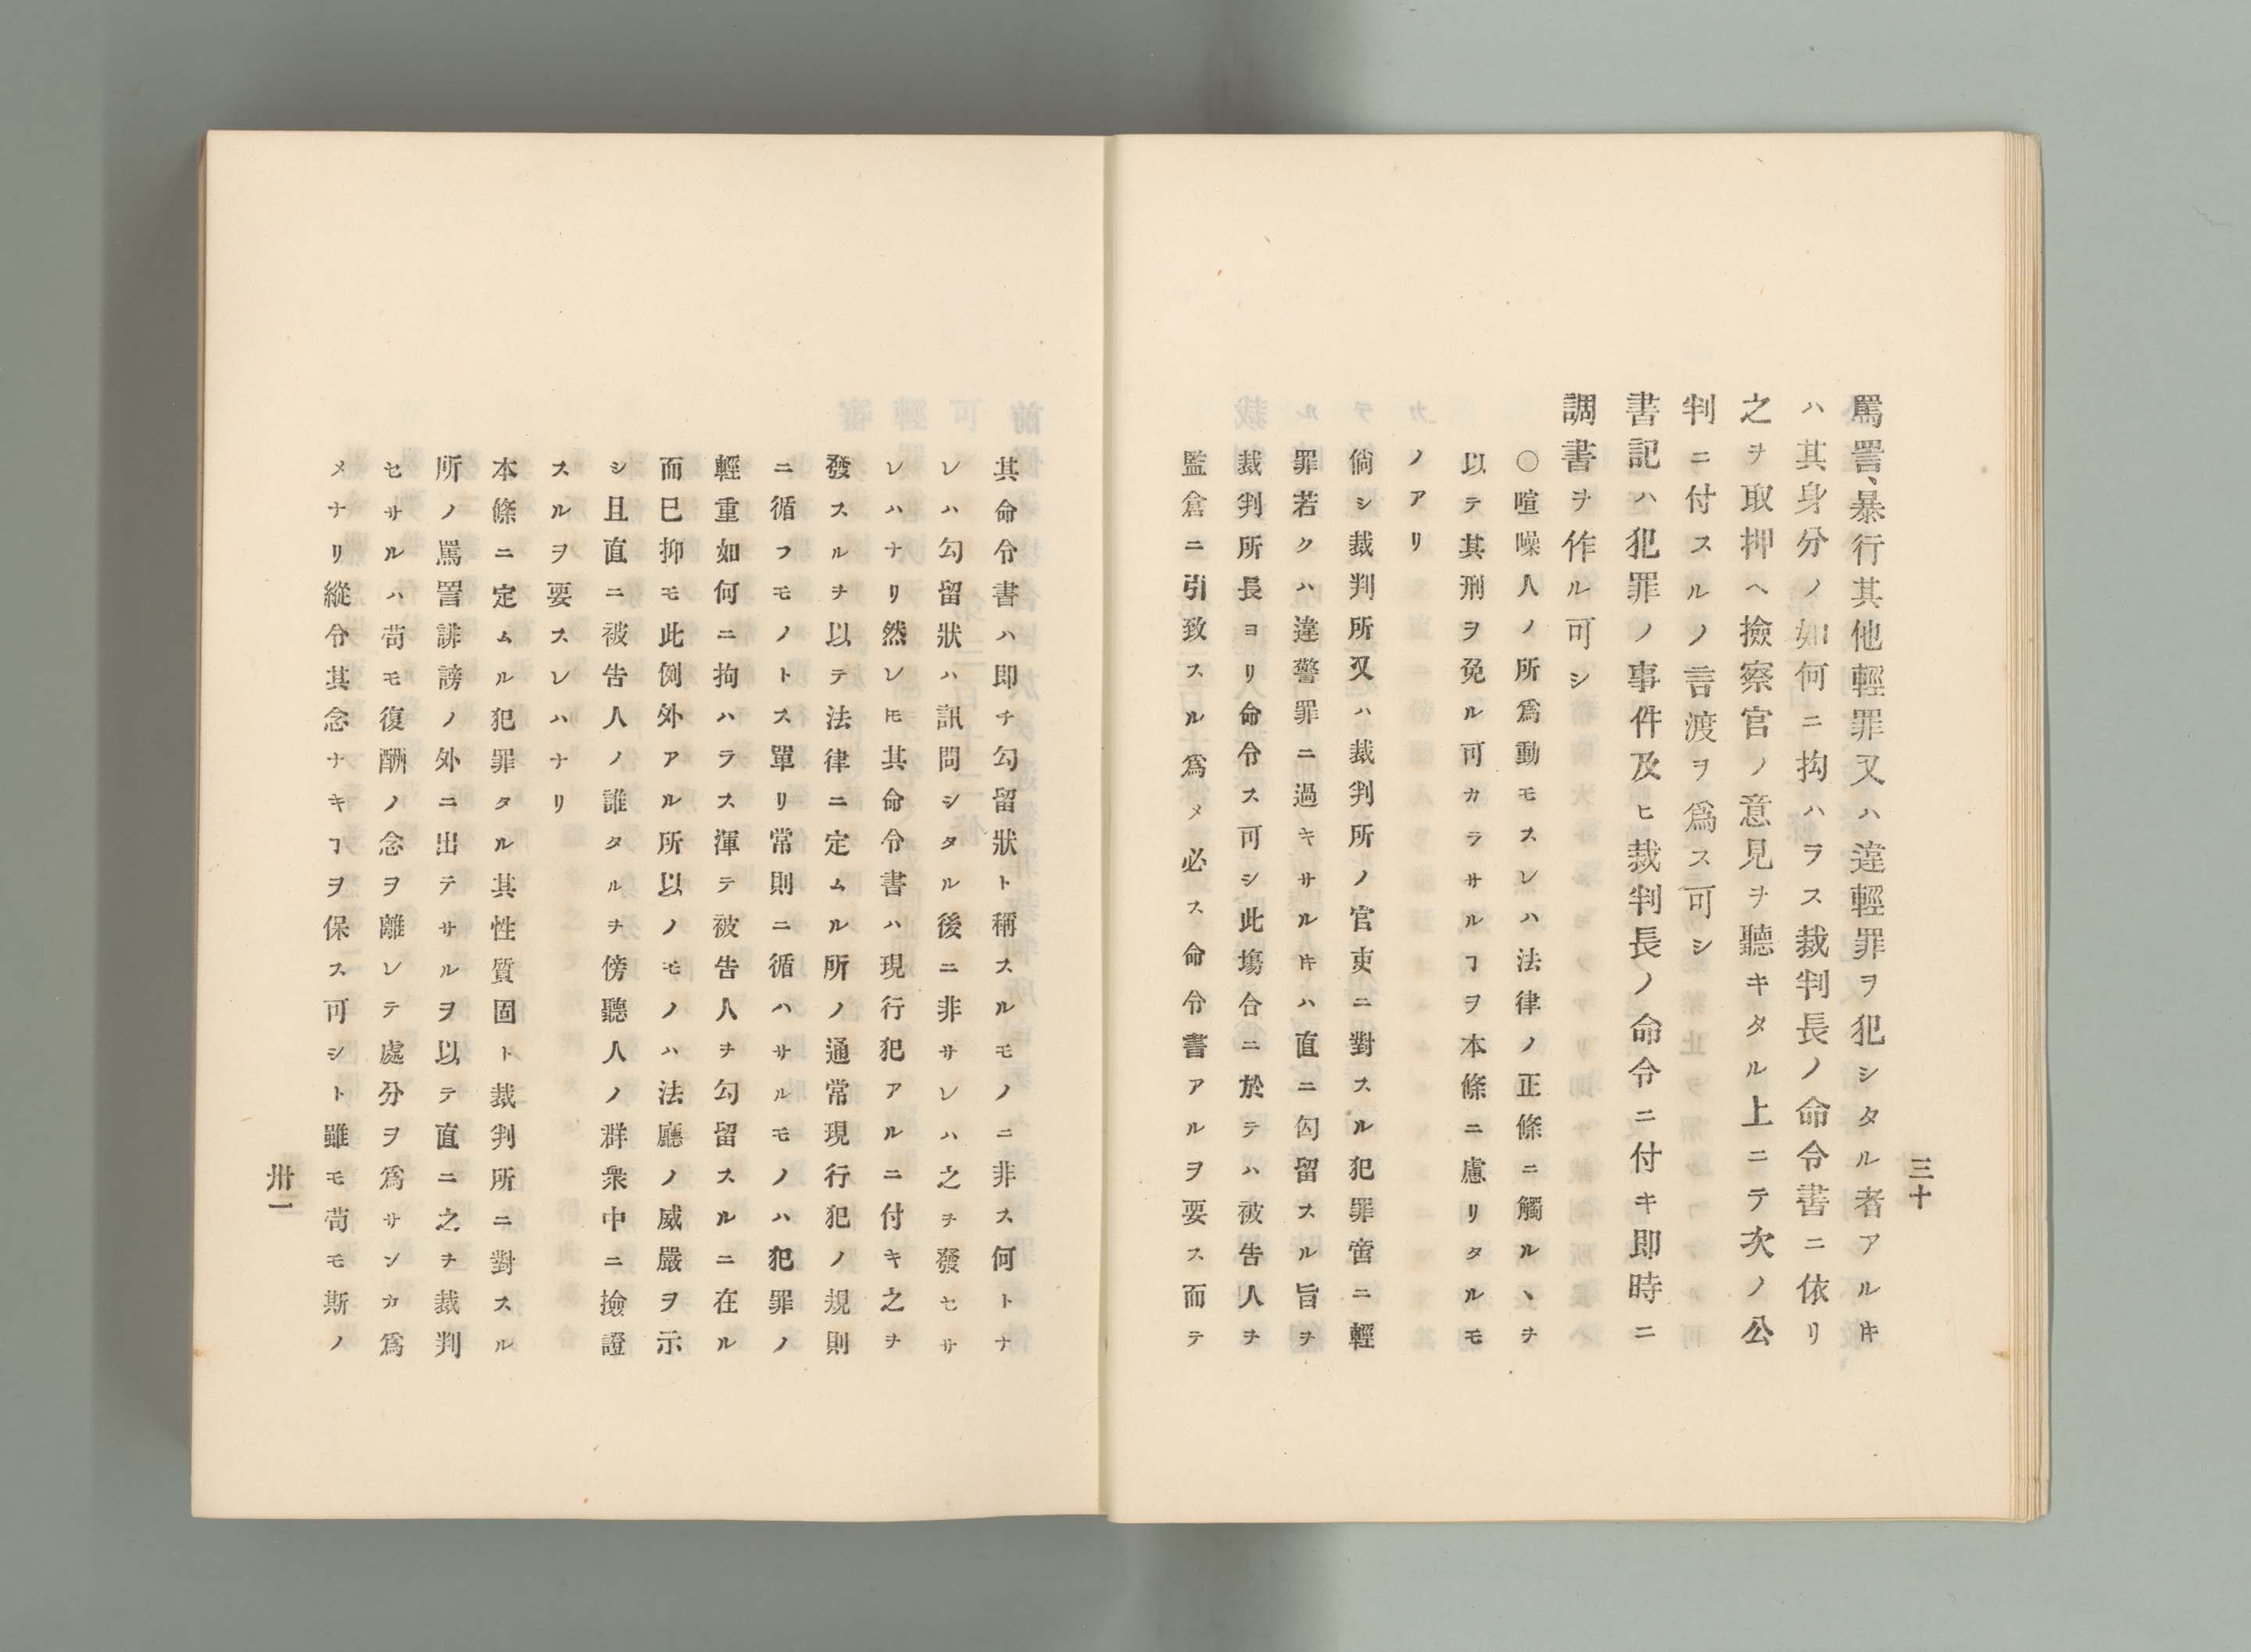 三十
罵詈、暴行其他輕罪又ハ違輕罪ヲ犯シタル者アルキ
ハ其身分ノ如何ニ拘ハラス裁判長ノ命令書ニ依リ
之ヲ取押ヘ撿察官ノ意見ヲ聽キタル上ニテ次ノ公
判ニ付スルノ言渡ヲ爲ス可シ
書記ハ犯罪ノ事件及ヒ裁判長ノ命令ニ付キ即時ニ
調書ヲ作ル可シ
〇喧噪人ノ所爲動モスレハ法律ノ正條ニ觸ルヽヲ
以テ其刑ヲ免ル可カラサルヿヲ本條ニ慮リタルモ
ノアリ
倘シ裁判所又ハ裁判所ノ官吏ニ對スル犯罪啻ニ輕
罪若クハ違警罪ニ過キサルキハ直ニ勾留スル旨ヲ
裁判所長ヨリ命令ス可シ此塲合ニ於テハ被告人ヲ
監倉ニ引致スル爲メ必ス命令書アルヲ要ス而テ
其命令書ハ即チ勾留狀ト稱スルモノニ非ス何トナ
レハ勾留狀ハ訊問シタル後ニ非サレハ之ヲ發セサ
レハナリ然レㇳモ其命令書ハ現行犯アルニ付キ之ヲ
發スルヲ以テ法律ニ定ムル所ノ通常現行犯ノ規則
ニ循フモノトス單リ常則ニ循ハサルモノハ犯罪ノ
輕重如何ニ拘ハラス渾テ被告人ヲ勾留スルニ在ル
而已抑モ此例外アル所以ノモノハ法廳ノ威嚴ヲ示
シ且直ニ被告人ノ誰タルヲ傍聽人ノ群衆中ニ撿證
スルヲ要スレハナリ
本條ニ定ムル犯罪タル其性質固ト裁判所ニ對スル
所ノ罵詈誹謗ノ外ニ出テサルヲ以テ直ニ之ヲ裁判
セサルハ苟モ復酬ノ念ヲ離レテ處分ヲ爲サンカ爲
メナリ縱令其念ナキヿヲ保ス可シト雖モ苟モ斯ノ
卅一